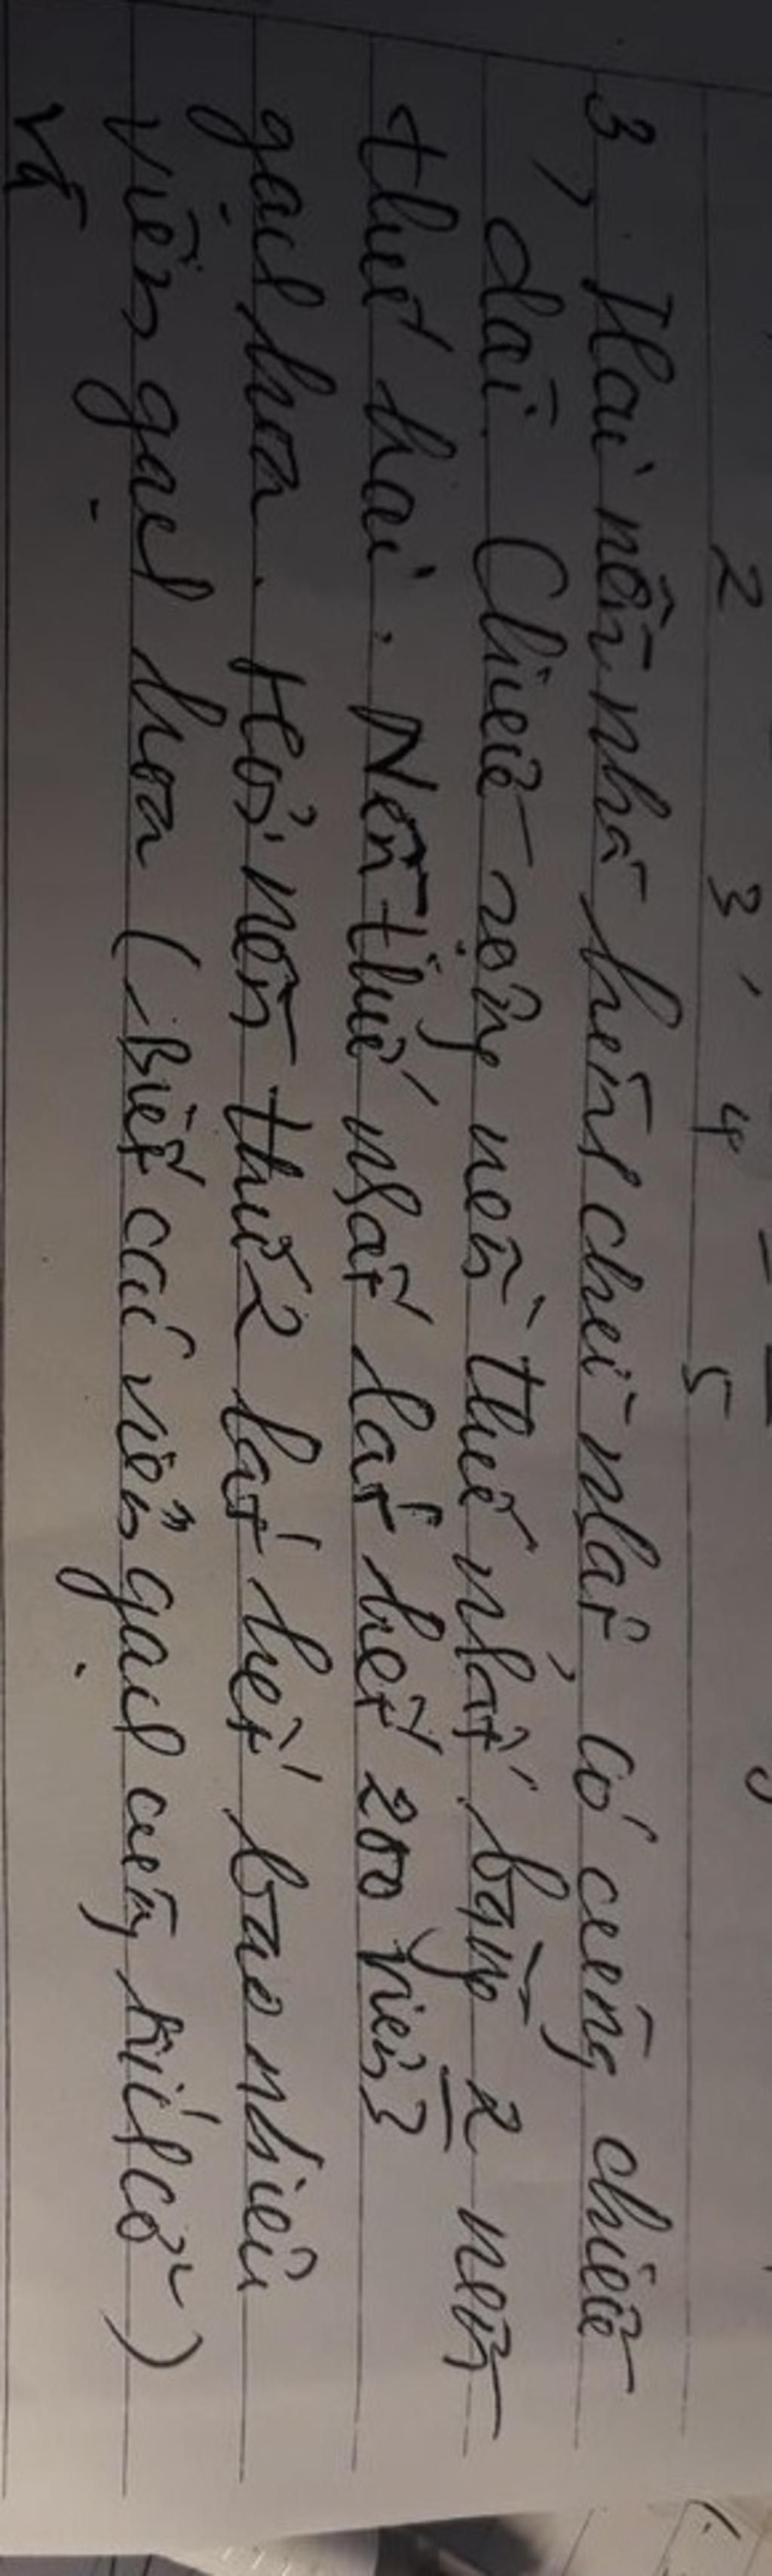 2 3, 4 5
3, Hai nền nhà hình chữ nhật có cùng chiều
dài. Chiều rộng nền thứ nhất bằng 2 nền
3
thứ hai. Nền thứ nhất lát hết 200 viên
gạch hoa. Hỏi nền thứ 2 lát hết bao nhiêu
viên gạch hoa (Biết các viên gạch cùng kích cỡ)